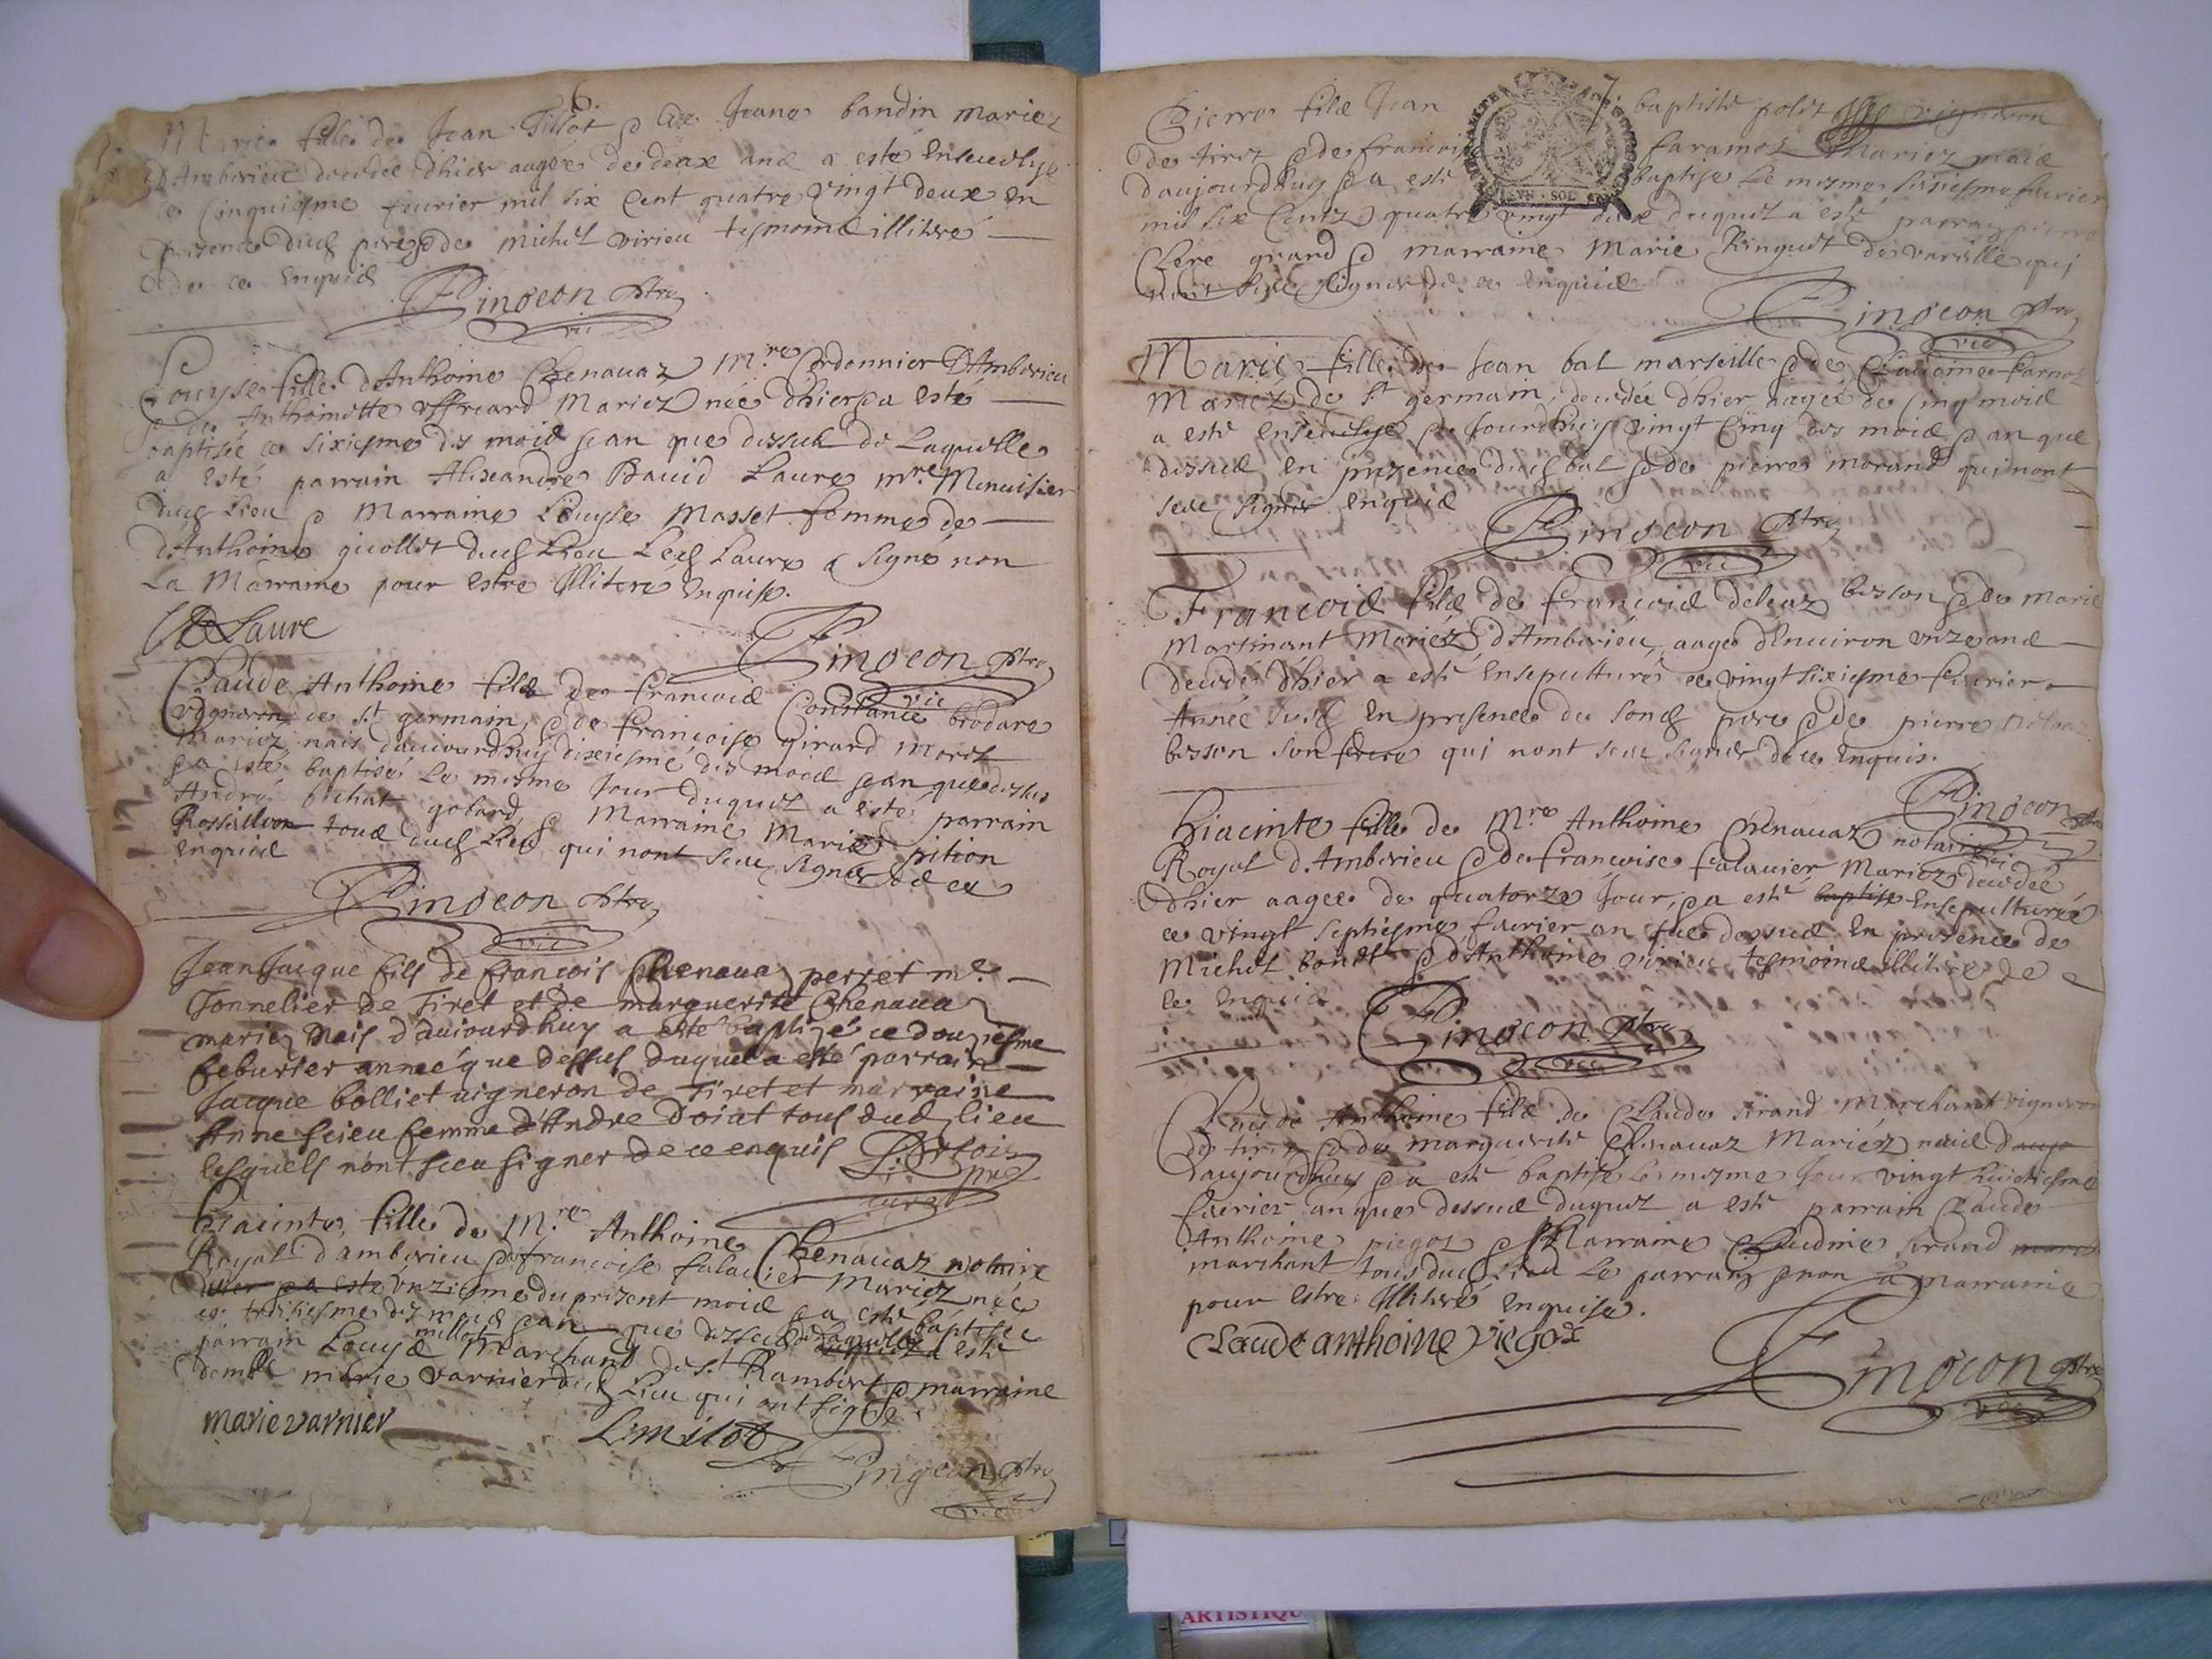 6
Marie fille de Jean Tillot & de Jeane bandin mariez
d'Amberieu decedée d'hier aagée de deux ans a esté ensevelye
ce cinquiesme feurier mil six cent quatre vingt deux en
presence dud pere & de Michel virieu tesmoins illiteré
de ce enquis
Pingeon ptre
vic
Louyse fille d'Anthoine Chenauaz Mre Cordonnier d'Amberieu
& de Anthoinette Mariez née d'hier & a esté
baptisée ce sixiesme des mois & an que dessus de Laquelle
a esté parrain Alexandre Dauid Laure mre Menuisier
dud Lieu & Marraine Louyse Masset femme de
d'Anthoine guollet dud Lieu Led Laure a signé non
La Marraine pour estre Illiteré enquise.
Laure
Pingeon ptre
vic
Claude Anthoine fils de francois Constance brodare
vigneron de st germain, & de francoise girard
Mariez, nais d'auiourdhuy dixiesme des mois & an que dessus
& a esté baptisé le mesme Jour duquel a esté parrain
André bichat gobard & Marraine Marie pition
Rossillion tous dud Lieu qui nont sceu signer de ce
enquis
Pingeon ptre
vic
Jean Jacque fils de françois Chenaua perret me
Tonnelier de Tiret et de marguerite Chenaua
mariez Nais d'auiourdhuy a esté baptizé ce douziesme
feburier année que dessus duquel a esté parrain
Jacque bolliet uigneron de Tiret et marraine
Anne scieu femme d'Andre Doiat tous dud lieu
lesquels n'ont sceu signer de ce enquis
curé
hiacinte fille de Mre Anthoine Chenauaz notaire
Royal d'amberieu & de francoise falauier Mariez née
dhier & a esté unziesme du present mois & a esté baptisée
ce treisiesme des mois & an que dessus de laquelle a esté
parrain Louys millot Marchand de st Rambert & marraine
demlle marie varnier dud Lieu qui ont signé
marie varnier
L milot
Pingeon ptre
vic
7
Pierre fils Jean baptiste polet vigneron
de tiret & de francoise faramel Mariez nais
daujourdhuy & a esté baptise Le mesme sisiesme feurier
mil six Centz quatre vingt deux duquel a esté parray pierre
Clere grand & marraine Marie Ringuet de varille qui
nont sceu signer de ce enquis
Pingeon ptre
vic
Marie fille de Jean bal marseille & de Claudine farnet
Mariez de st germain, decedée dhier aagée de cinq mois
a esté enseuelye & Jourdhuy vingt cinq des mois & an que
dessus en presence dud bal & de pierre morand qui nont
sceu signer enquis
Pingeon ptre
vic
Francois fils de francois deleaz bisson & de marie
Martinant Mariez d'Amberieu, aagé d'enuiron unze ans
decedé d'hier a esté ensepulturé ce vingt sixiesme feurier
Année susd En presence de sond pere & de pierre
bisson son frere qui nont sceu signer de ce enquis.
Pingeon ptre
vic
hiacinte fille de Mre Anthoine Chenauaz notaire
Royal d'Amberieu & de francoise falauier Mariez decedée
dhier aagee de quatorze Jour, & a esté baptise ensepulturée
ce vingt septiesme feurier an que dessus en presence de
Michel bonet & d'Anthoine virieu tesmoins illitere de
ce enquis
Pingeon ptre
vic
Claude Anthoine fils de Claude Girand Marchant vigneron
de tiret & de marguerite Chenauaz Mariez nais
daujourdhuy & a esté baptisé Le mesme Jour vingt huictiesme
feurier an que dessus duquel a esté parrain Claude
Anthoine piegoz & Marraine Claudine Girand
marchant tous dud Lieu Le parrain & non La marraine
pour estre Illiteré enquise.
Claude anthoine viegoz
Pingeon ptre
vic
ARTISTIQU